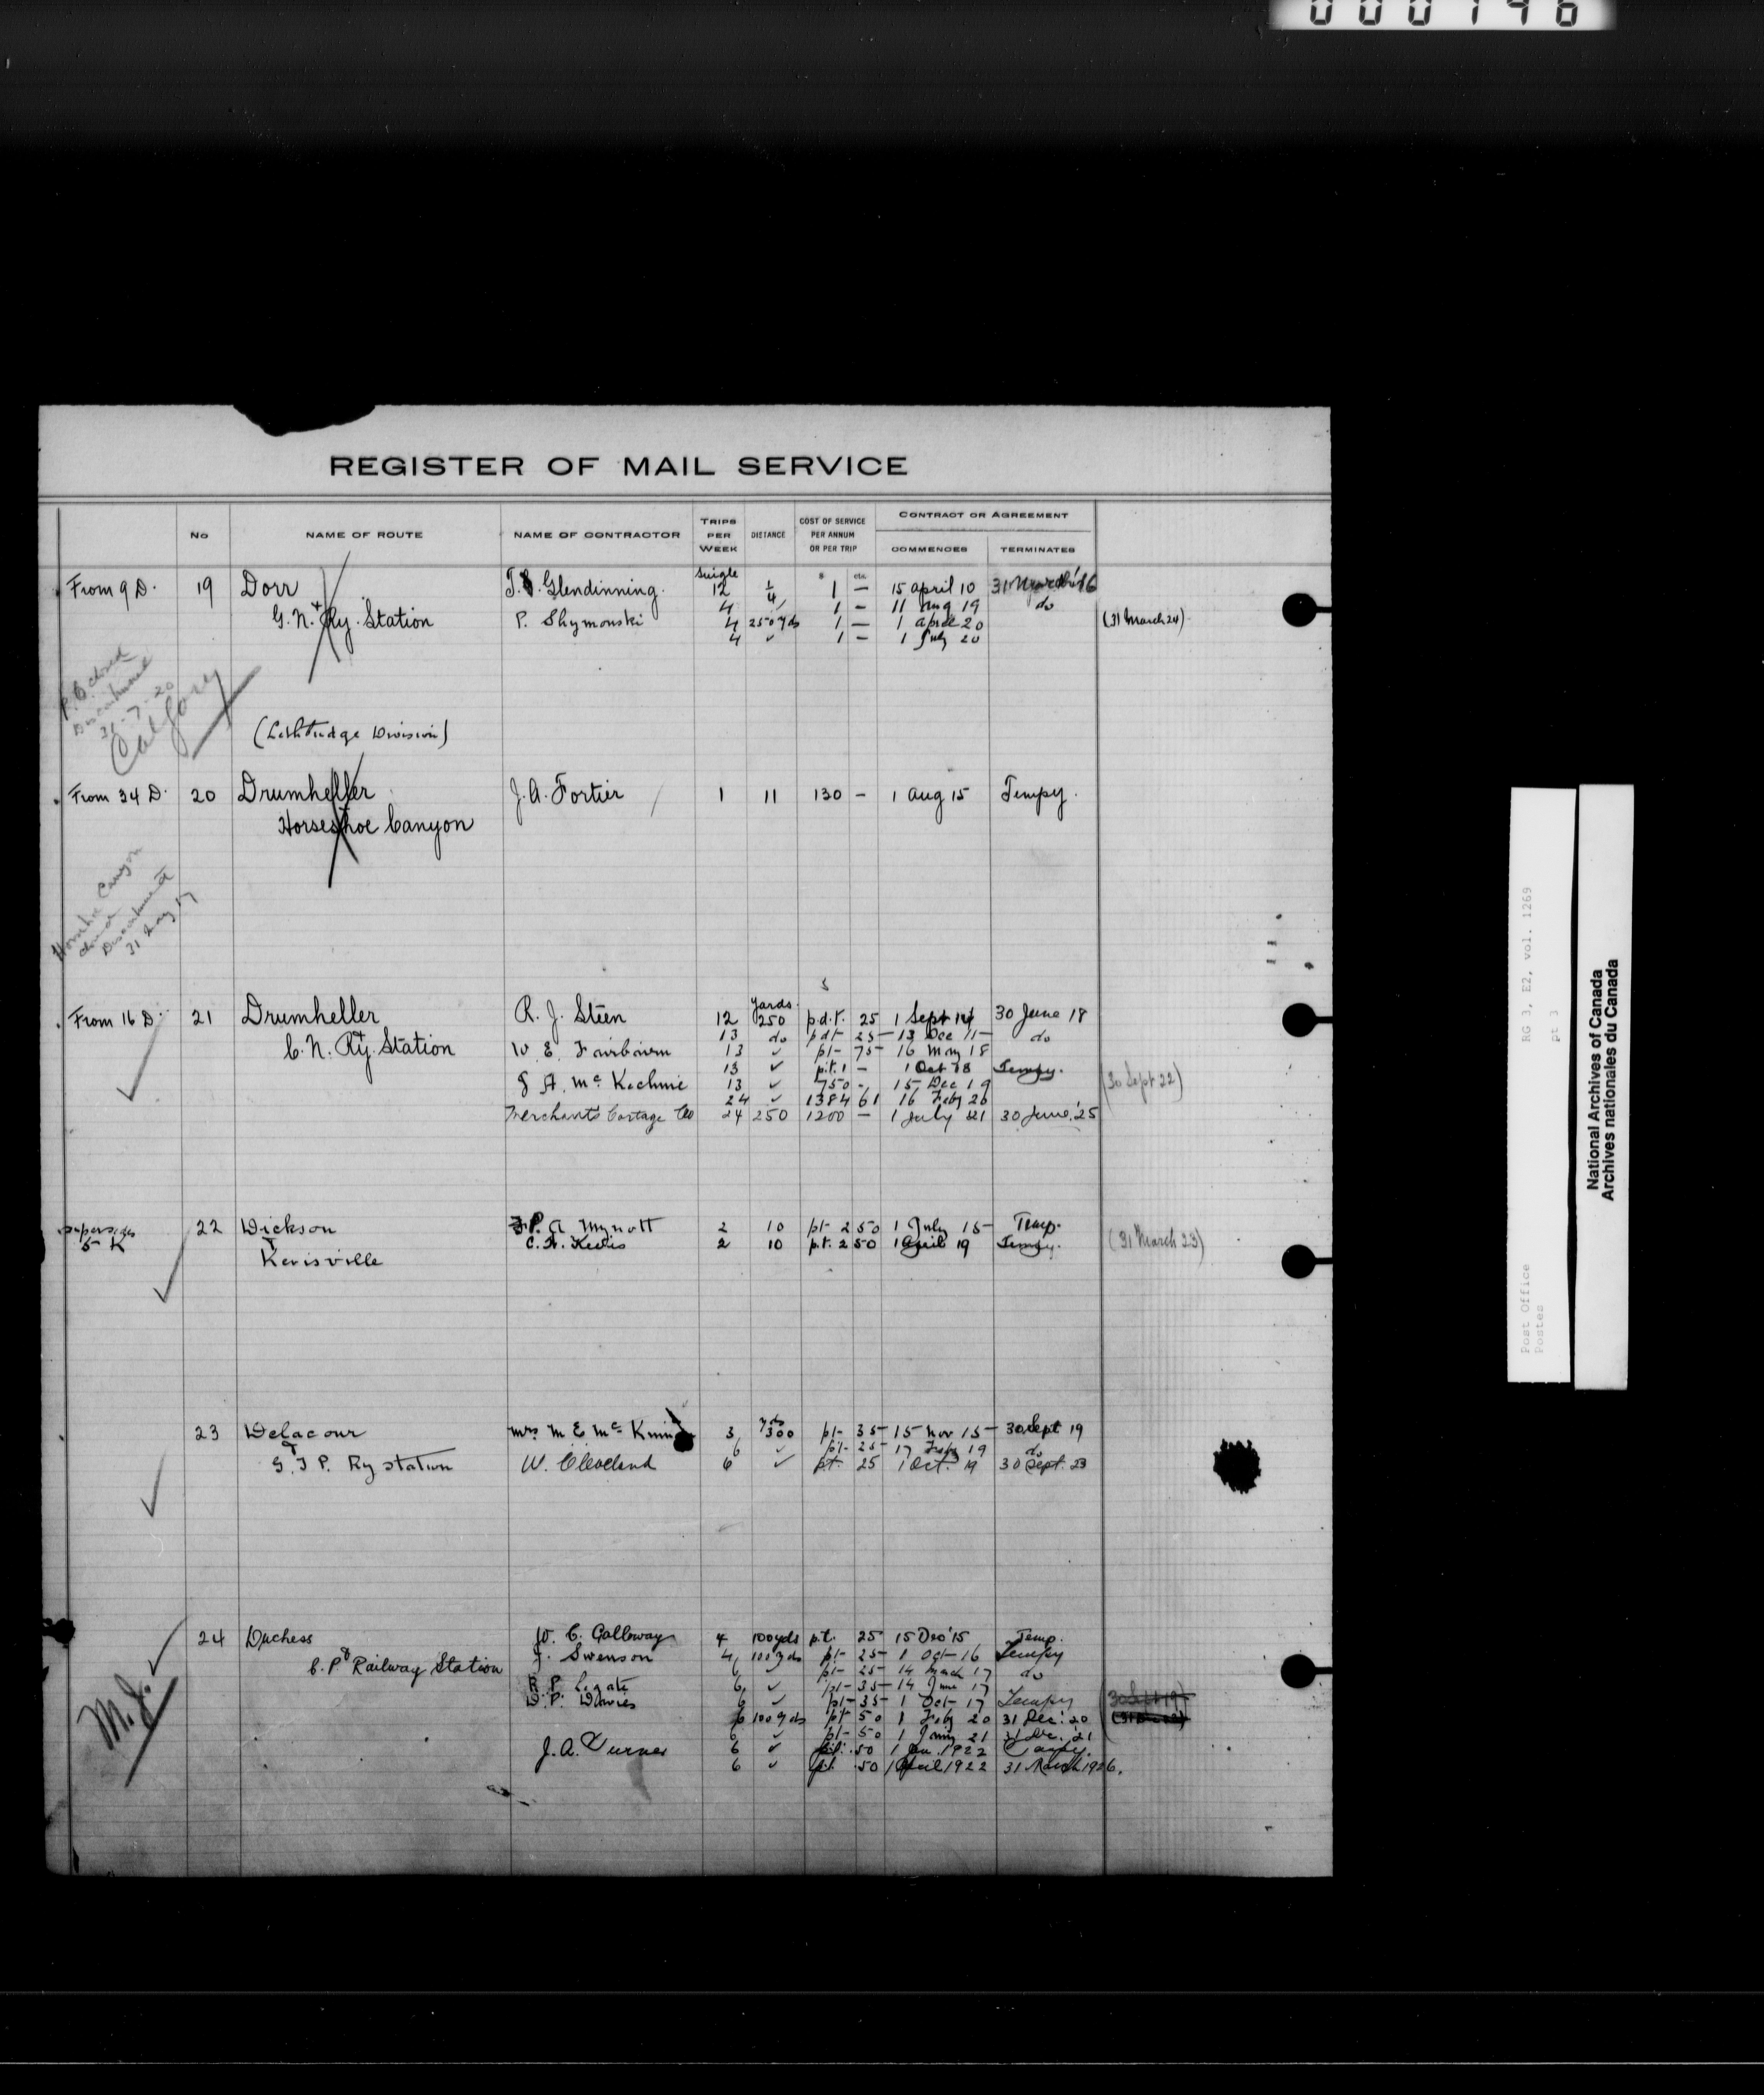 REGISTER OF MAIL SERVICE
No NAME OF ROUTE NAME OF CONTRACTOR TRIPS PER WEEK DISTANCE COST OF SERVICE PER ANNUM OR PER TRIP CONTRACT OR AGREEMENT
COMMENCES TERMINATES
$ cts
Single
From 9 D. 19 Dorr Glendinning. 12 1/4 1 — 15 April 10 31 March '16
4 1 — 11 Aug 19 do
G.N. Ry. Station P. Shymonski 4 250 yds 1 — 1 April 20 (31 March 24)
4 ✓ 1 — 1 July 20
P.O. closed
Discontinued
31-7-20
Calgary
(Lethbridge Division)
From 34 D. 20 Drumheller J.A. Fortier 1 11 130 — 1 Aug 15 Tempy.
Horseshoe Canyon
Horseshoe Canyon
closed
Discontinued
31 May 17
$
yards
From 16 D. 21 Drumheller R. J. Steen 12 250 p.d.t. 25 1 Sept 14 30 June 18
13 do pdt 25 13 Dec 11 do
& C.N. Ry. Station W. E. Fairbairn 13 ✓ pt 75 16 May 18
13 ✓ p.t. 1 — 1 Oct 18 Tempy.
J A. McKechnie 13 ✓ 750 - 15 Dec 19 (30 Sept 22)
24 ✓ 1384 61 16 Feby 20
Merchants Cartage Co 24 250 1200 — 1 July 21 30 June '25
supersedes 22 Dickson P. A Mynott 2 10 pt 2 50 1 July 15 Temp.
5 K C. H. 2 10 p.t. 2 50 1 April 19 Tempy. (31 March 23)
& Kevisville
yds
23 Delacour Mrs M E Mc 3 300 pt 35 15 Nov 15 30 Sept 19
6 ✓ pt 25 17 Feby 19 do
& G.T.P. Ry station W. Cleveland 6 ✓ pt. 25 1 Oct. 19 30 Sept. 23
24 Duchess W. C. Galloway 4 100 yds p.t. 25 15 Dec '15 Temp.
J. Swenson 4 100 yds pt 25 1 Oct 16 Tempy
& C.P. Railway Station 6 ✓ pt 25 14 March 17 do
R P. 6 ✓ pt 35 14 June 17
D. P. Davies 6 ✓ pt 35 1 Oct 17 Tempy
6 100 yds pt 50 1 Feby 20 31 Dec. '20
M.J. 6 ✓ pt 50 1 Jany 21 31 Dec. '21
J.A. Turner 6 ✓ pt. 50 1 Jan. 1922 Tempy.
6 ✓ pt. 50 1 April 1922 31 March 1926.
RG 3, E2, vol. 1269
pt 3
Post Office
Postes
National Archives of Canada
Archives nationales du Canada